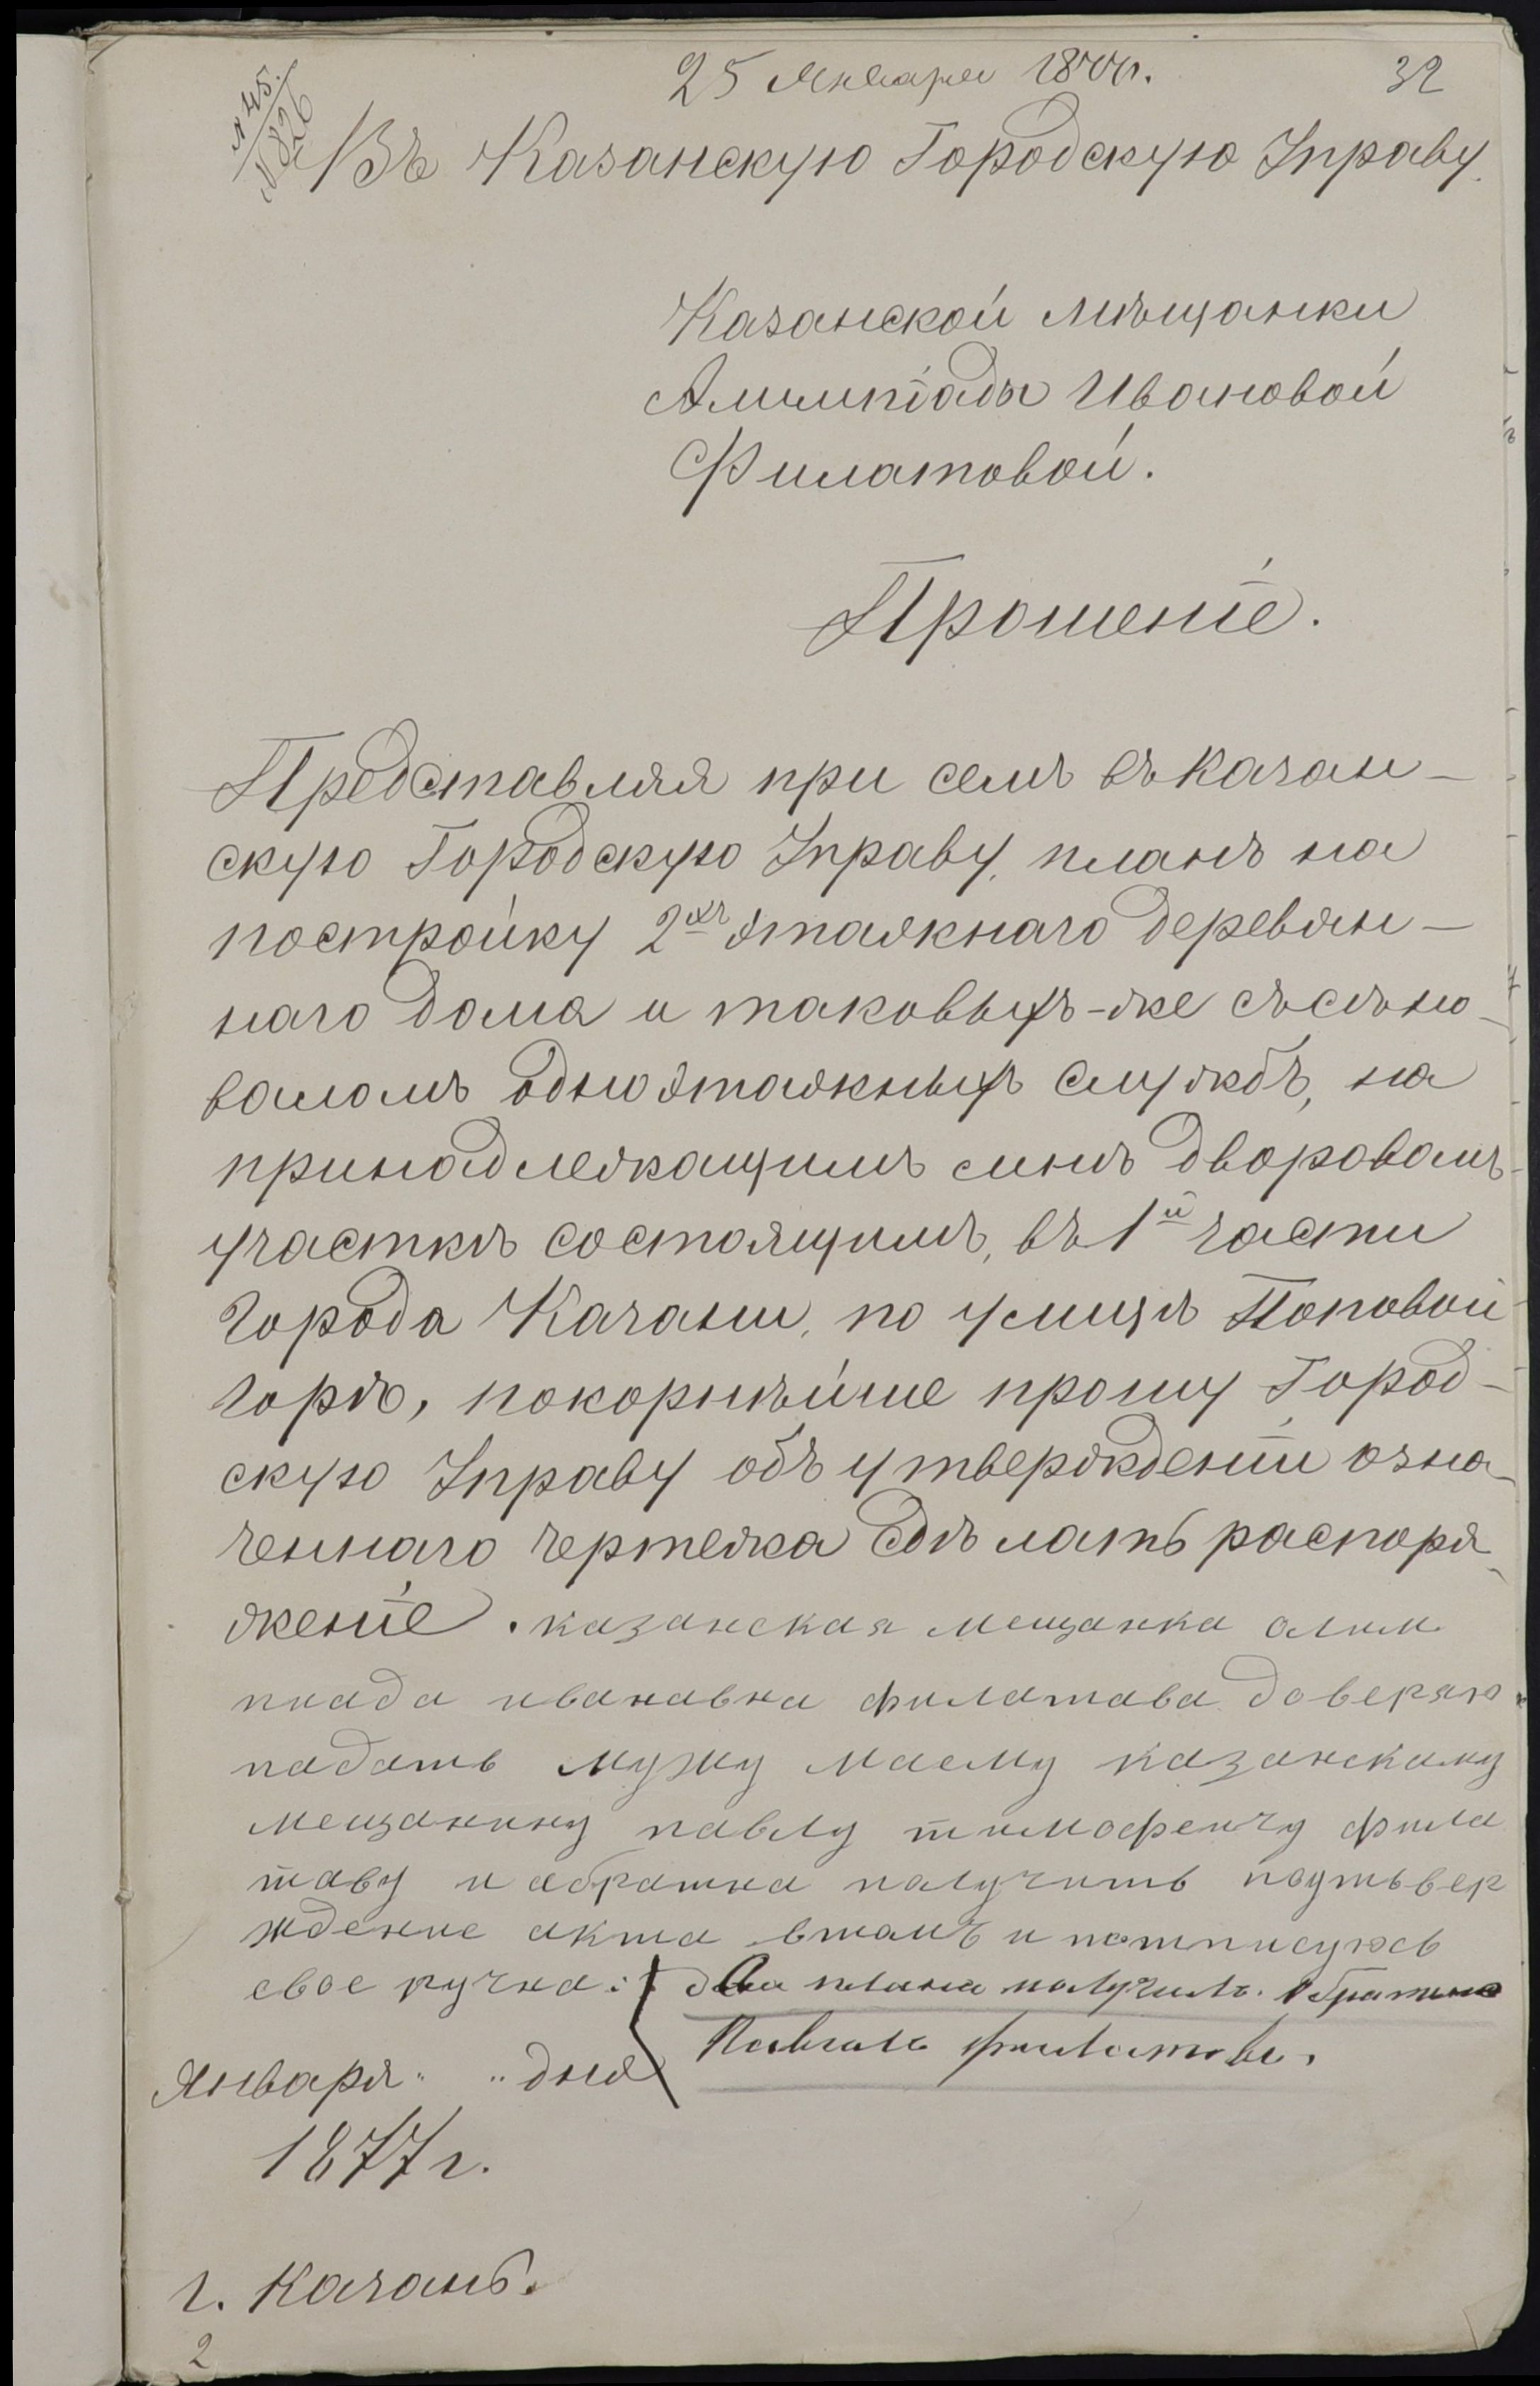 25 Января 1877г.
32
№ 45.
№ 826
Въ Казанскую Городскую Управу.
Казанской мѣщанки
Алимпіады Ивановой
Филатовой.
Прошеніе.
Представляя при семъ въ Казан-
скую Городскую Управу, планъ на
постройку 2хъ этажнаго деревян-
наго дома и таковыхъ-же съ сѣно-
валомъ одноэтажныхъ службъ, на
принадлежащимъ мнѣ дворовомъ
участкѣ состоящимъ, въ 1й части
города Казани, по улицѣ Поповой
горѣ, покорнѣйше прошу Город-
скую Управу объ утвержденіи озна-
ченнаго чертежа сдѣлать распоря-
женіе. казанская мещанка олим
пиада ивановна филатава доверяю
падать мужу маему казанскаму
мещанину павлу тимофеичу фила
таву и абратна палучить подтьвер
ждение акта втомъ и потписуюсь
свое ручна: два плана получилъ обратно
Павелъ Филатовъ.
Января " " дня
1877 г.
г. Казань.
2